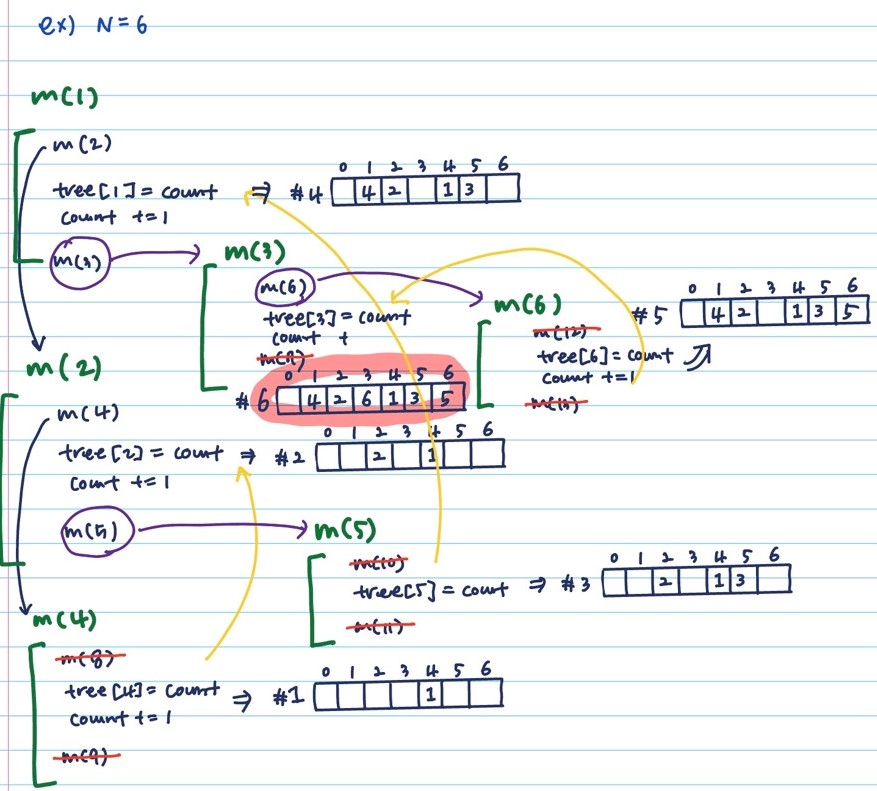 ex) N=6
m(1)
m(2)
tree[1] = count ⇒ #4
count +=1
0 1 2 3 4 5 6
4 2 1 3
m(3)
m(3)
m(6)
tree[3] = count
count +
0 1 2 3 4 5 6
#6 4 2 6 1 3 5
m(6)
m(12)
tree[6] = count
count +=1
m(13)
0 1 2 3 4 5 6
#5 4 2 1 3 5
m(2)
m(4)
tree[2] = count ⇒ #2
count +=1
0 1 2 3 4 5 6
2 1
m(5)
m(5)
m(10)
tree[5] = count ⇒ #3
m(11)
0 1 2 3 4 5 6
2 1 3
m(4)
m(8)
tree[4] = count ⇒ #1
count +=1
m(9)
0 1 2 3 4 5 6
1